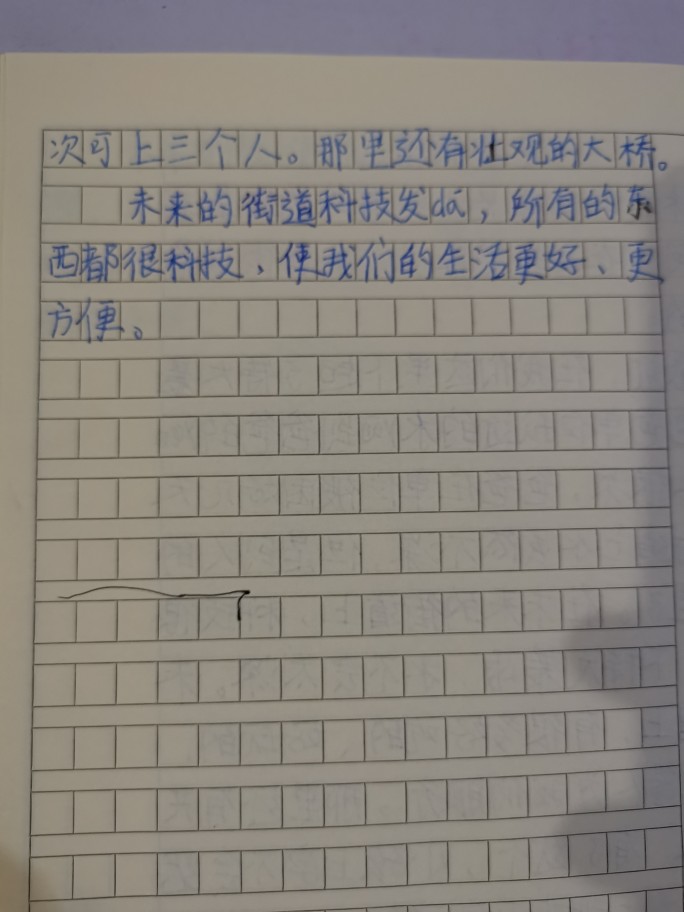 次可上三个人。那里还有壮观的大桥。
未来的街道科技发dá，所有的东
西都很科技、使我们的生活更好、更
方便。